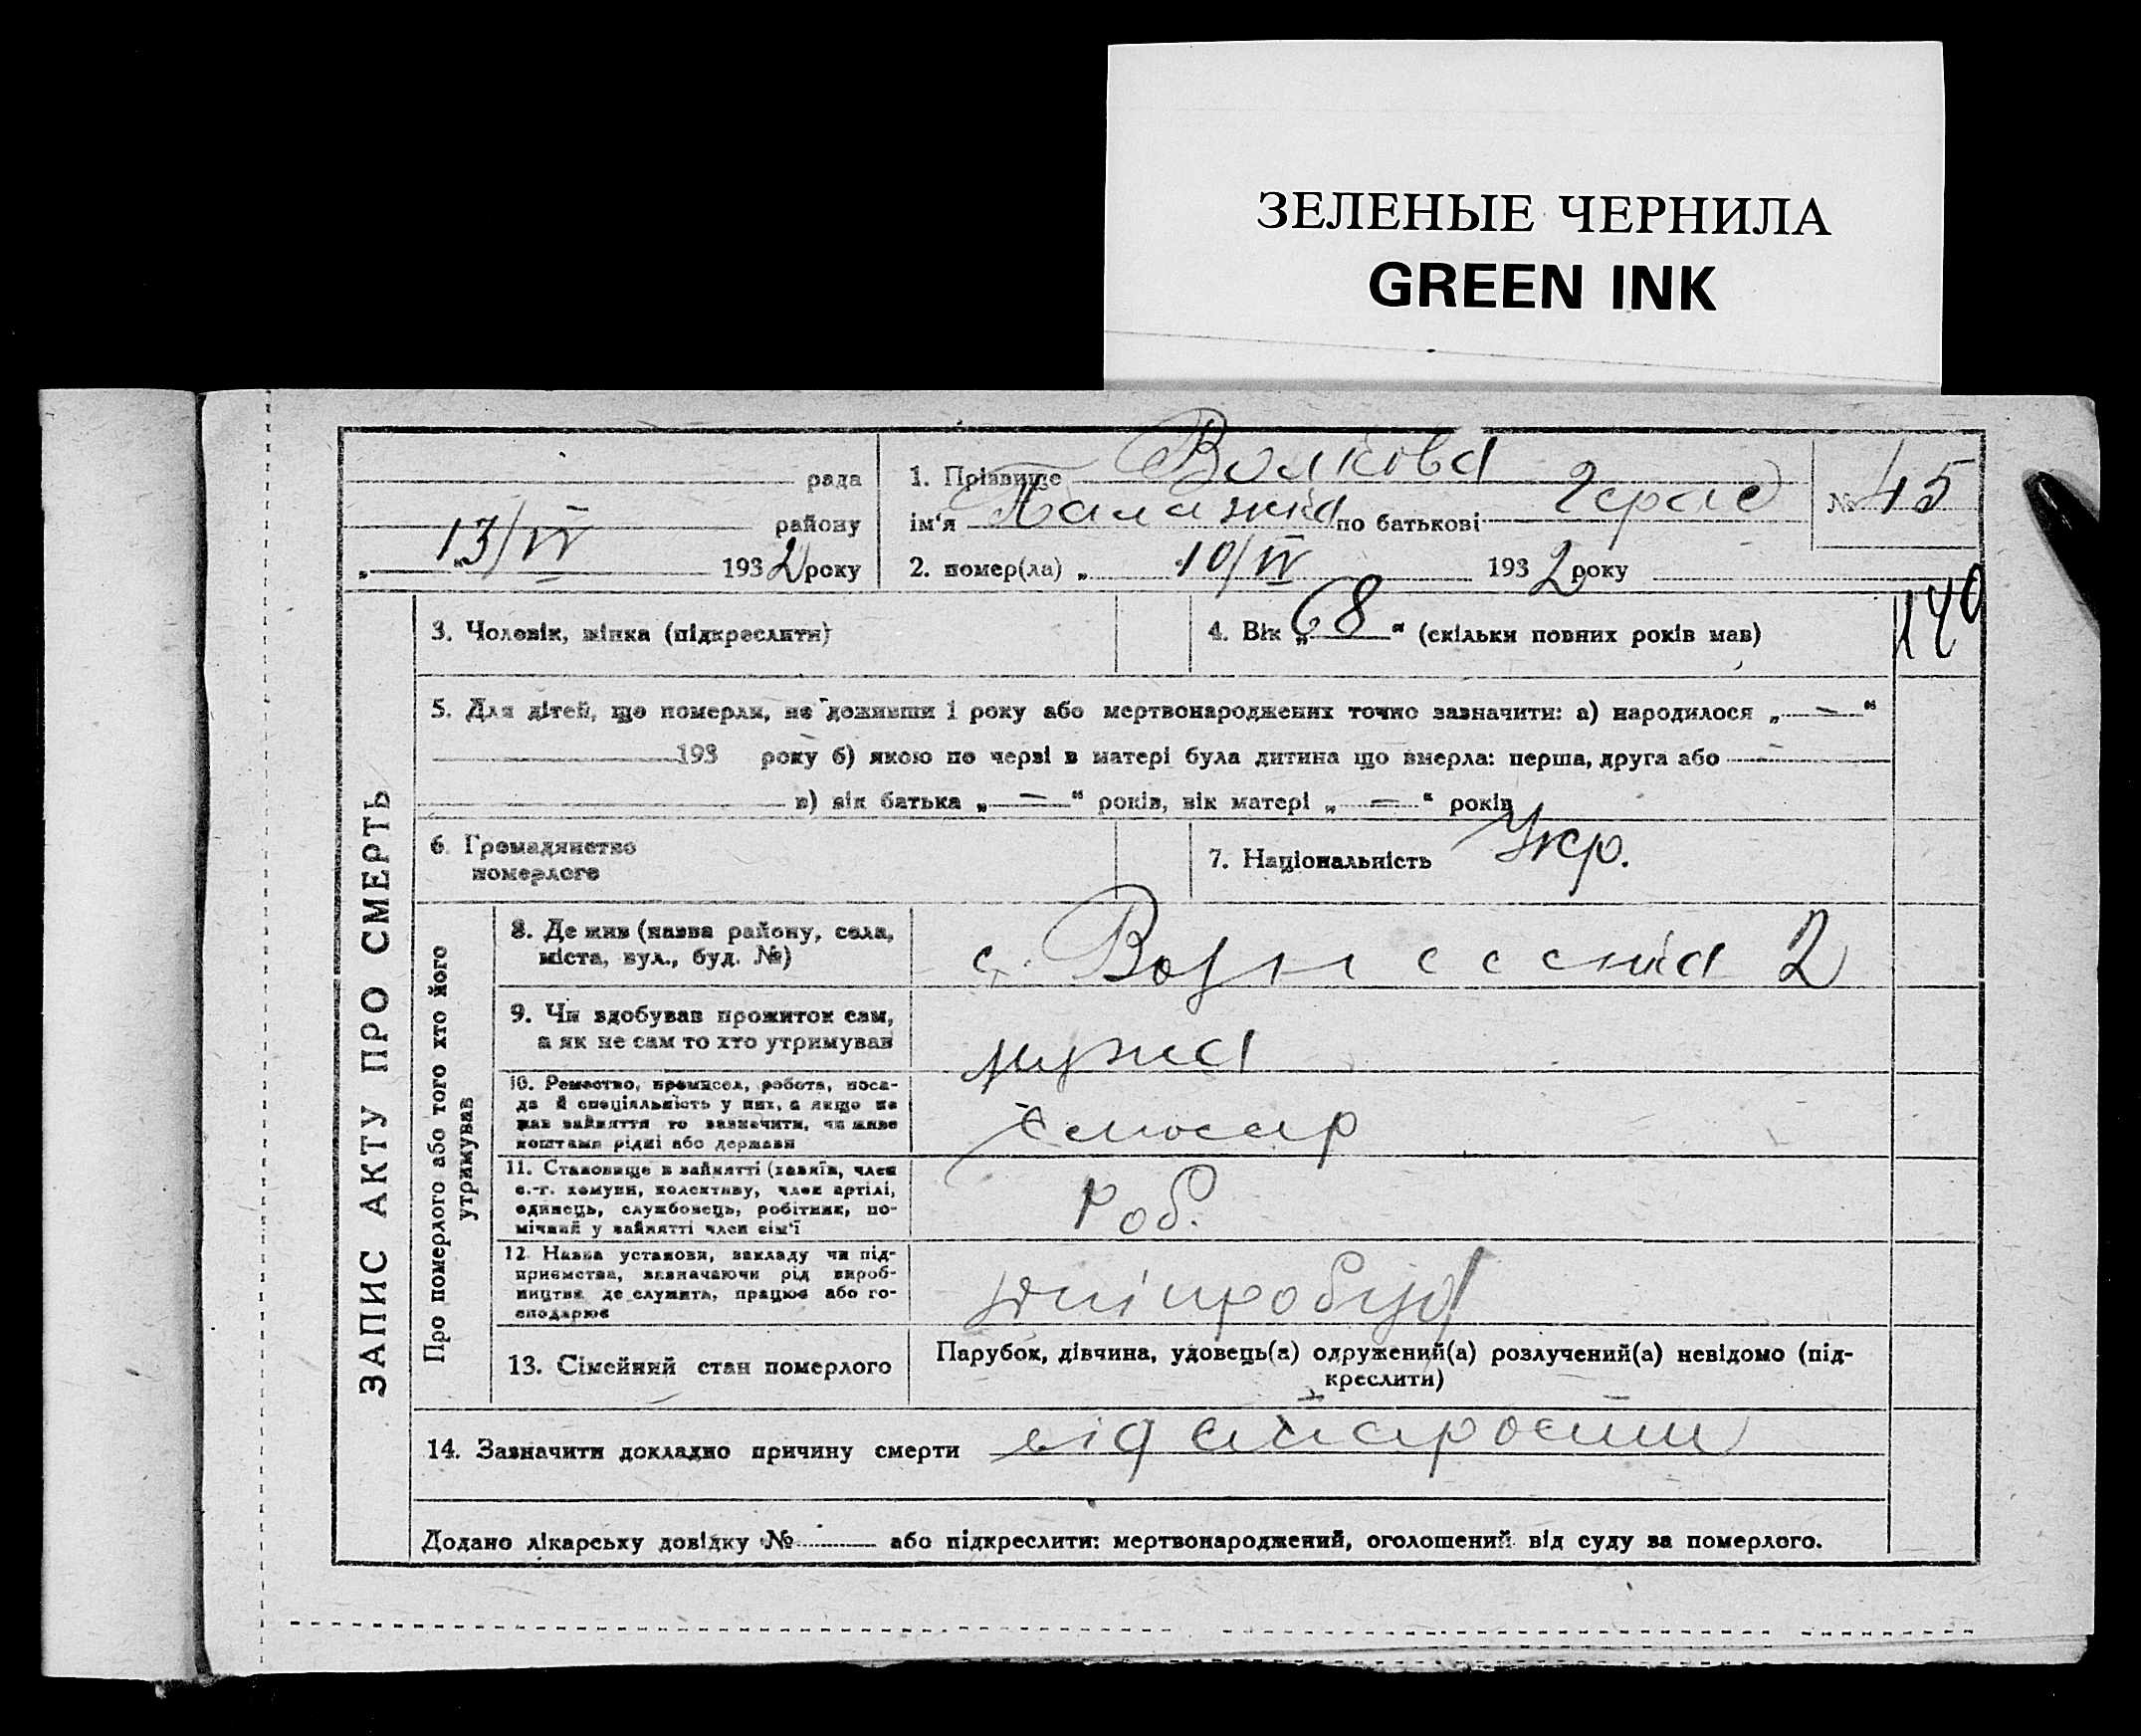 ЗЕЛЕНЫЕ ЧЕРНИЛА
GREEN INK
ЗАПИС АКТУ ПРО СМЕРТЬ
рада
району
13/IV 1932 року
1. Прізвище Волкова
ім'я Палажка по батькові Герас
№ 45
2. помер(ла) „ 10/IV 1932 року
3. Чоловік, жінка (підкреслити)
4. Вік „68“ (скільки повних років мав)
140
5. Для дітей, що померли, не доживши 1 року або мертвонароджених точно зазначити: а) народилося „—“
193 року б) якою по черзі в матері була дитина що вмерла: перша, друга або
в) вік батька „—“ років, вік матері „—“ років
6. Громадянство
померлого
7. Національність Укр.
Про померлого або того хто його
утримував
8. Де жив (назва району, села,
міста, вул., буд. №)
с. Вознесенка 2
9. Чи здобував прожиток сам,
а як не сам то хто утримував
мужа
10. Ремество, промисел, робота, поса-
да й спеціяльність у них, а якщо не
мав зайняття то зазначити, чи живе
коштами рідні або держави
слюсар
11. Становище в зайнятті (хазяїн, член
с.-г. комуни, колективу, член артілі,
одинець, службовець, робітник, по-
мічний у зайнятті член сім'ї
Роб.
12. Назва установи, закладу чи під-
приємства, зазначаючи рід вироб-
ництва де служить, працює або го-
сподарює
Дніпробуд
13. Сімейний стан померлого
Парубок, дівчина, удовець(а) одружений(а) розлучений(а) невідомо (під-
креслити)
14. Зазначити докладно причину смерти від старости
Додано лікарську довідку № або підкреслити: мертвонароджений, оголошений від суду за померлого.